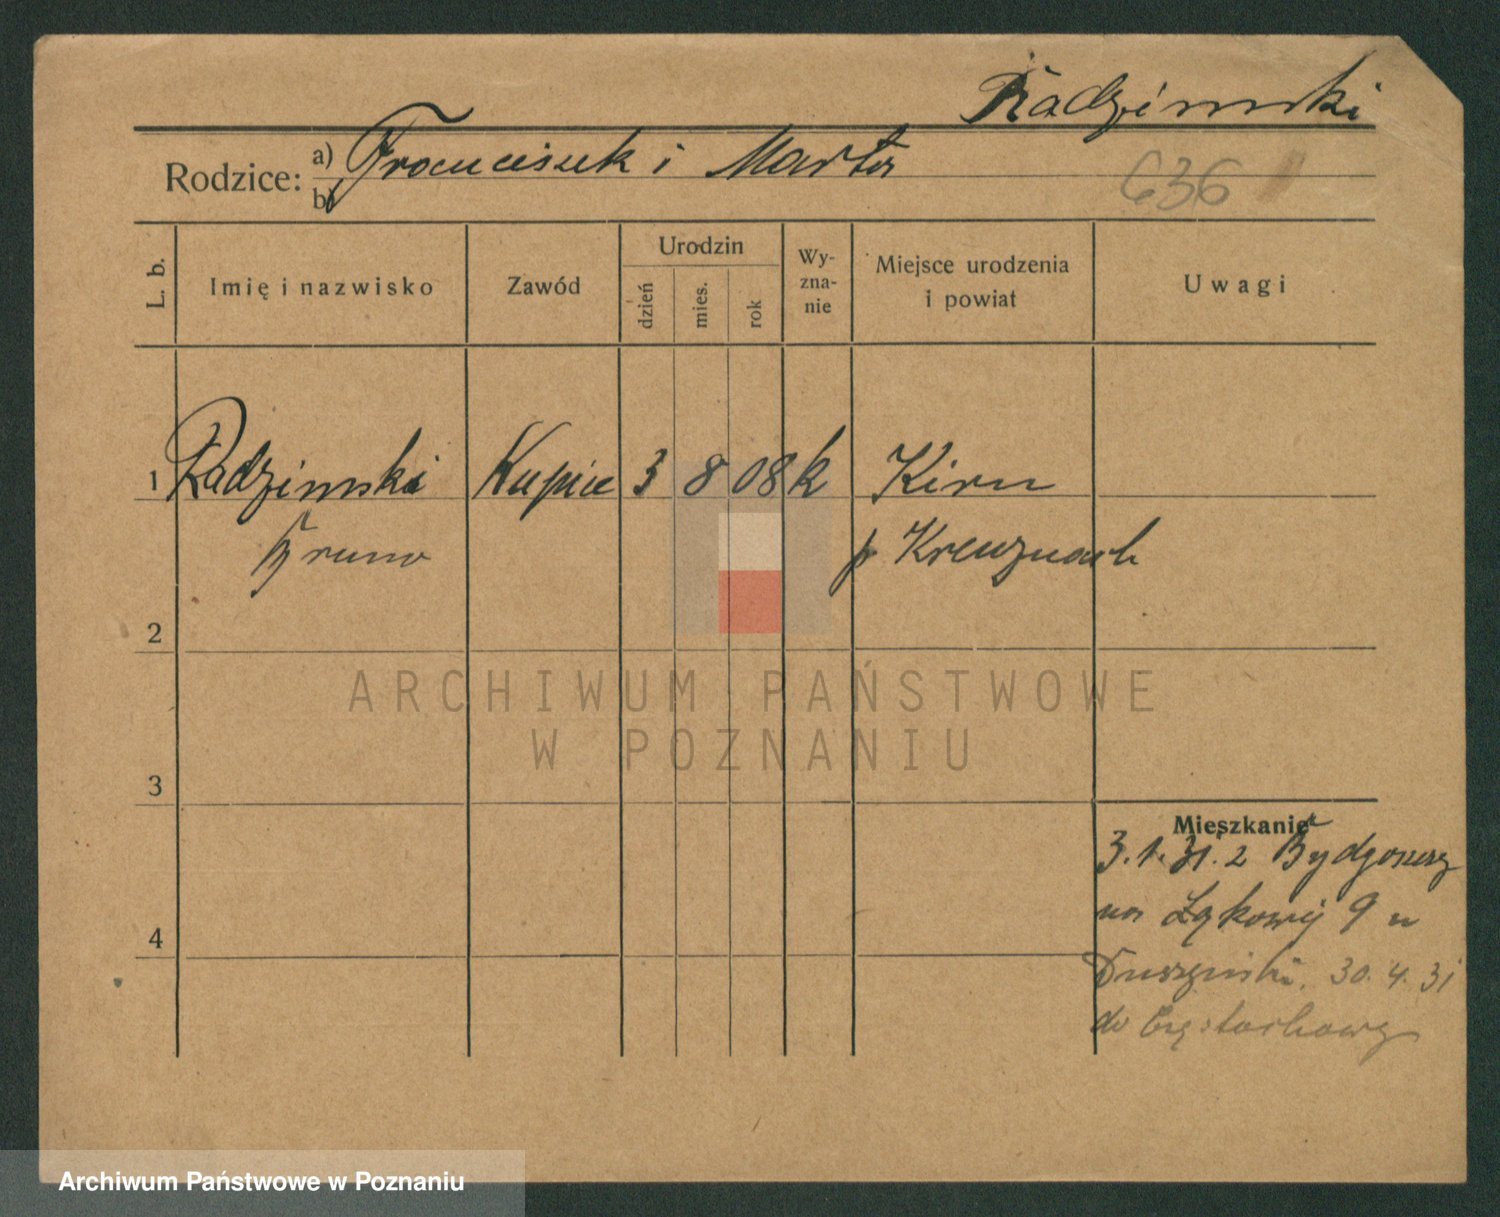 Radzimski
Rodzice: a) Franciszek i Marta
b)
636
L. b.
Imię i nazwisko
Zawód
Urodzin
dzień
mies.
rok
Wy-
zna-
nie
Miejsce urodzenia
i powiat
Uwagi
1 Radzimski Kupiec 3 8 08 k Kirn
Bruno p Kreuznach
2
ARCHIWUM PAŃSTWOWE
W POZNANIU
3
Mieszkanie
3.1.31. z Bydgoszcz
na Łąkowij 9 u
30.4.31
do Częstochowy
4
Archiwum Państwowe w Poznaniu